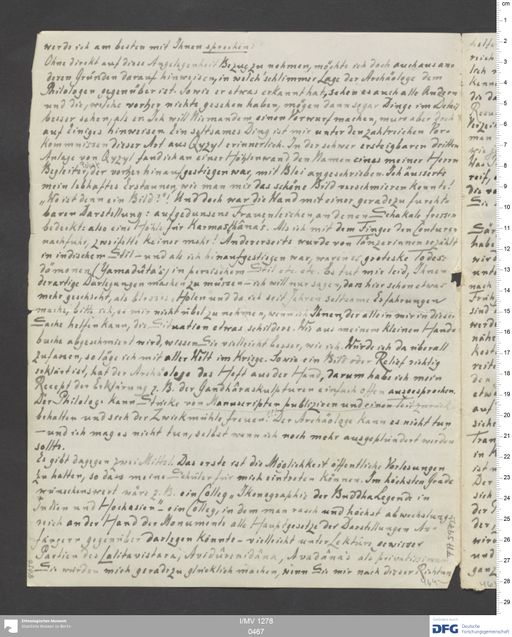 werde ich am besten mit Ihnen sprechen!
Ohne direkt auf diese Angelegenheit Bezug zu nehmen, möchte ich doch auch aus an-
deren Gründen darauf hinweisen, in welch schlimmer Lage der Archäologe dem
Philologen gegenüber ist. Sowie er etwas erkannt hat, sehen es auch alle Andern
und die, welche vorher nichts gesehen haben, mögen dann sogar Dinge im Detail
besser sehen, als er. Ich will Niemandem einen Vorwurf machen, muss aber doch
auf Einiges hinweisen. Ein seltsames Ding ist mir unter den zahlreichen Vor-
kommnissen dieser Art aus Qyzyl erinnerlich. In der schwer ersteigbaren dritten
Anlage von Qyzyl fand ich an einer Höhlenwand den Namen eines meiner Herrn
Begleiter, der vorher hinaufgestiegen war, mit Blei angeschrieben. Ich äusserte
mein lebhaftes Erstaunen, wie man mir das schöne Bild verschmieren konnte!
„Wo ist denn ein Bild?“! Und doch war die Wand mit einer geradezu furcht-
baren Darstellung: aufgedunsene Frauenleichen, an denen Schakale fressen
bedeckt: also eine Höhle für Karmasthânas. Als ich mit dem Finger den Conturen
nachfuhr, zweifelte keiner mehr! Andererseits wurde von Tänzerinnen erzählt
in indischem Stil – und als ich hinaufgestiegen war, waren es groteske Todes-
dämonen (Yamadûtâs) in persischem Stil etc. etc. Es tut mir leid, Ihnen
derartige Darlegungen machen zu müssen – ich will nur sagen, dass hier schon etwas
mehr geschieht, als blosses Holen und da ich seit Jahren seltsame Erfahrungen
mache, bitte ich, es mir nicht übel zu nehmen, wenn ich Ihnen, der allein mir in dieser
Sache helfen kann, die Situation etwas schildere. Wie aus meinem kleinen Hand-
buche abgeschmiert wird, wissen Sie vielleicht besser, wie ich. Würde ich da überall
zufassen, so läge ich mit aller Welt im Kriege. Sowie ein Bild oder Relief richtig
erklärt ist, hat der Archäologe das Heft aus der Hand, darum habe ich mein
Recept der Erklärung z. B. der Gandhâraskulpturen einfach offen ausgesprochen.
Der Philologe kann Stücke von Manuscripten publizieren und einen Teil zurück-
behalten und sich der Zwickmühle freuen! Der Archäologe kann es nicht tun
– und ich mag es nicht tun, selbst wenn ich noch mehr ausgeplündert werden
sollte.
Es gibt dagegen zwei Mittel. Das erste ist die Möglichkeit öffentliche Vorlesungen
zu halten, so dass meine Schüler für mich eintreten können. Im höchsten Grade
wünschenswert wäre z. B. ein Colleg „Ikonographie der Buddhalegende in
Indien und Hochasien – ein Colleg, in dem man rasch und höchst abwechslungs-
reich an der Hand der Monumente alle Hauptgesetze der Darstellungen An-
fängern gegenüber darlegen könnte – vielleicht unter Lektüre gewisser
Partien des Lalitavistara, Avidûrenidâna, Avadânas als privatissimum
Sie würden mich geradezu glücklich machen, wenn Sie mir nach dieser Richtung
Ethnologisches Museum
Staatliche Museen zu Berlin
I/MV 1278
0467
DFG
Deutsche
Forschungsgemeinschaft